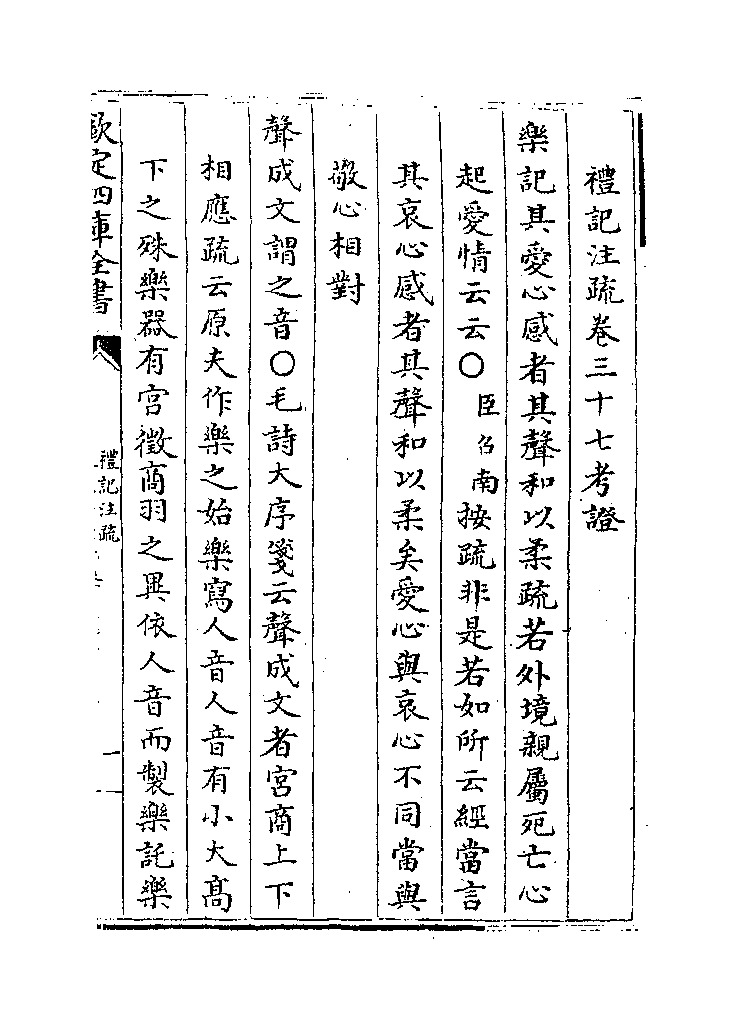 禮記注疏卷三十七考證
樂記其愛心感者其聲和以柔疏若外境親屬死亡心
起愛情云云〇臣召南按疏非是若如所云經當言
其哀心感者其聲和以柔矣愛心與哀心不同當與
敬心相對
聲成文謂之音〇毛詩大序箋云聲成文者宮商上下
相應疏云原夫作樂之始樂寫人音人音有小大高
下之殊樂器有宮徵商羽之異依人音而製樂託樂
欽定四庫全書
禮記注疏
一